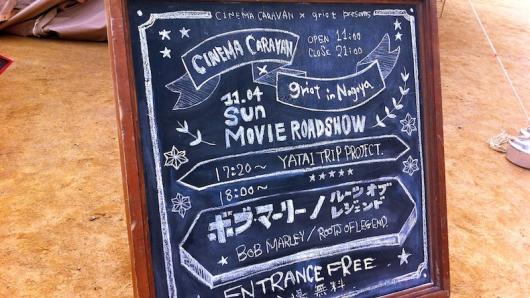 CINEMA CARAVAN x griot presents
CINEMA CARAVAN
OPEN 11:00
CLOSE 21:00
×
griot in Nagoya
11.04
SUN
MOVIE ROADSHOW
17:20~ YATAI TRIP PROJECT.
18:00~
ボブ・マーリー / ルーツオブ
レジェンド
BOB MARLEY / ROOTS OF LEGEND.
ENTRANCE FREE
入場無料